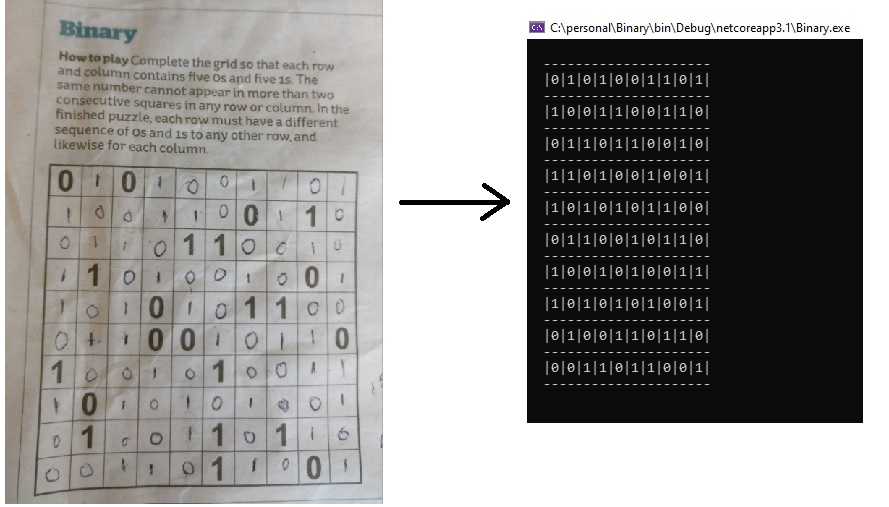 Binary
How to play Complete the grid so that each row
and column contains five 0s and five 1s. The
same number cannot appear in more than two
consecutive squares in any row or column. In the
finished puzzle, each row must have a different
sequence of 0s and 1s to any other row, and
likewise for each column.
0 1 0 1 0 0 1 1 0 1
1 0 0 1 1 0 0 1 1 0
0 1 1 0 1 1 0 0 1 0
1 1 0 1 0 0 1 0 0 1
1 0 1 0 1 0 1 1 0 0
0 1 1 0 0 1 0 1 1 0
1 0 0 1 0 1 0 0 1 1
1 0 1 0 1 0 1 0 0 1
0 1 0 0 1 1 0 1 1 0
0 0 1 1 0 1 1 0 0 1
C:\personal\Binary\bin\Debug\netcoreapp3.1\Binary.exe
---------------------
|0|1|0|1|0|0|1|1|0|1|
---------------------
|1|0|0|1|1|0|0|1|1|0|
---------------------
|0|1|1|0|1|1|0|0|1|0|
---------------------
|1|1|0|1|0|0|1|0|0|1|
---------------------
|1|0|1|0|1|0|1|1|0|0|
---------------------
|0|1|1|0|0|1|0|1|1|0|
---------------------
|1|0|0|1|0|1|0|0|1|1|
---------------------
|1|0|1|0|1|0|1|0|0|1|
---------------------
|0|1|0|0|1|1|0|1|1|0|
---------------------
|0|0|1|1|0|1|1|0|0|1|
---------------------